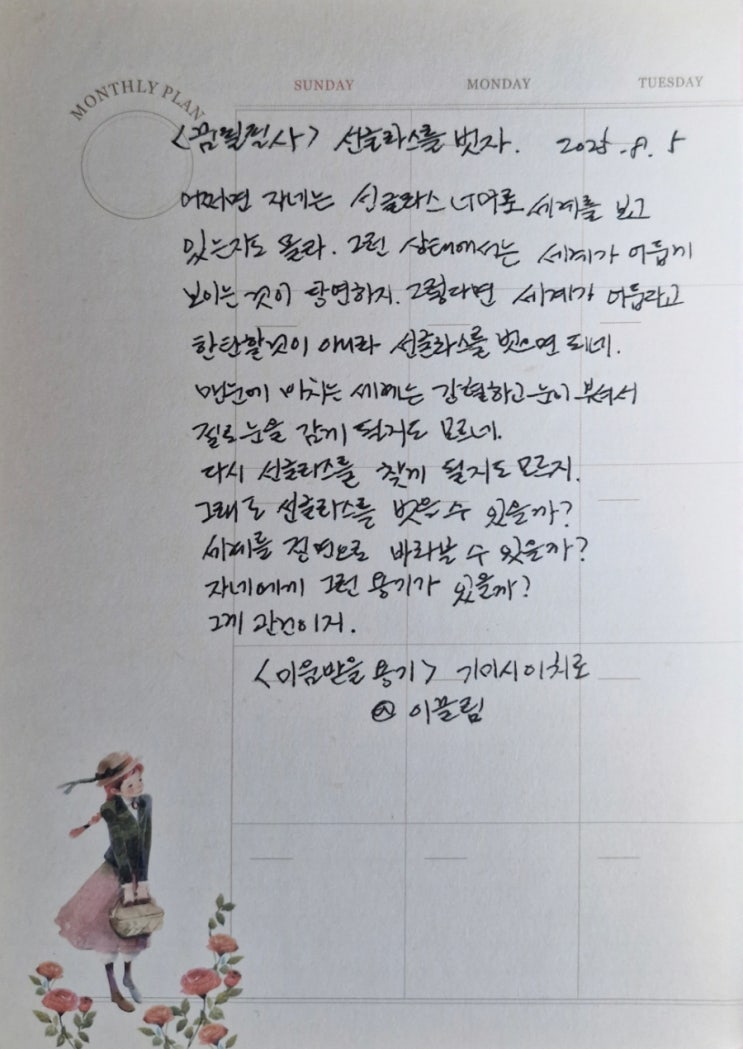 MONTHLY PLAN
SUNDAY MONDAY TUESDAY
<끔필필사> 선글라스를 벗자. 2025.8.5
어쩌면 자네는 선글라스 너머로 세계를 보고
있는지도 몰라. 그런 상태에서는 세계가 어둡게
보이는 것이 당연하지. 그렇다면 세계가 어둡다고
한탄할것이 아니라 선글라스를 벗으면 되네.
맨눈에 비치는 세계는 강렬하고 눈이 부셔서
절로 눈을 감게 될지도 모르네.
다시 선글라스를 찾게 될지도 모르지.
그래도 선글라스를 벗을 수 있을까?
세계를 정면으로 바라볼 수 있을까?
자네에게 그런 용기가 있을까?
그게 관건이지.
<미움받을 용기> 기미시 이치로
이끌림